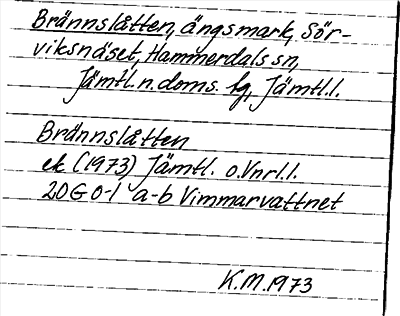 Brännslåtten, ängsmark, Sör-
viksnäset, Hammerdals sn,
Jämtl. n. doms. fg, Jämtl. l.
Brännslåtten
ek (1973) Jämtl. o. Vnrl. l.
20G 0-1 a-b Vimmarvattnet
K.M. 1973